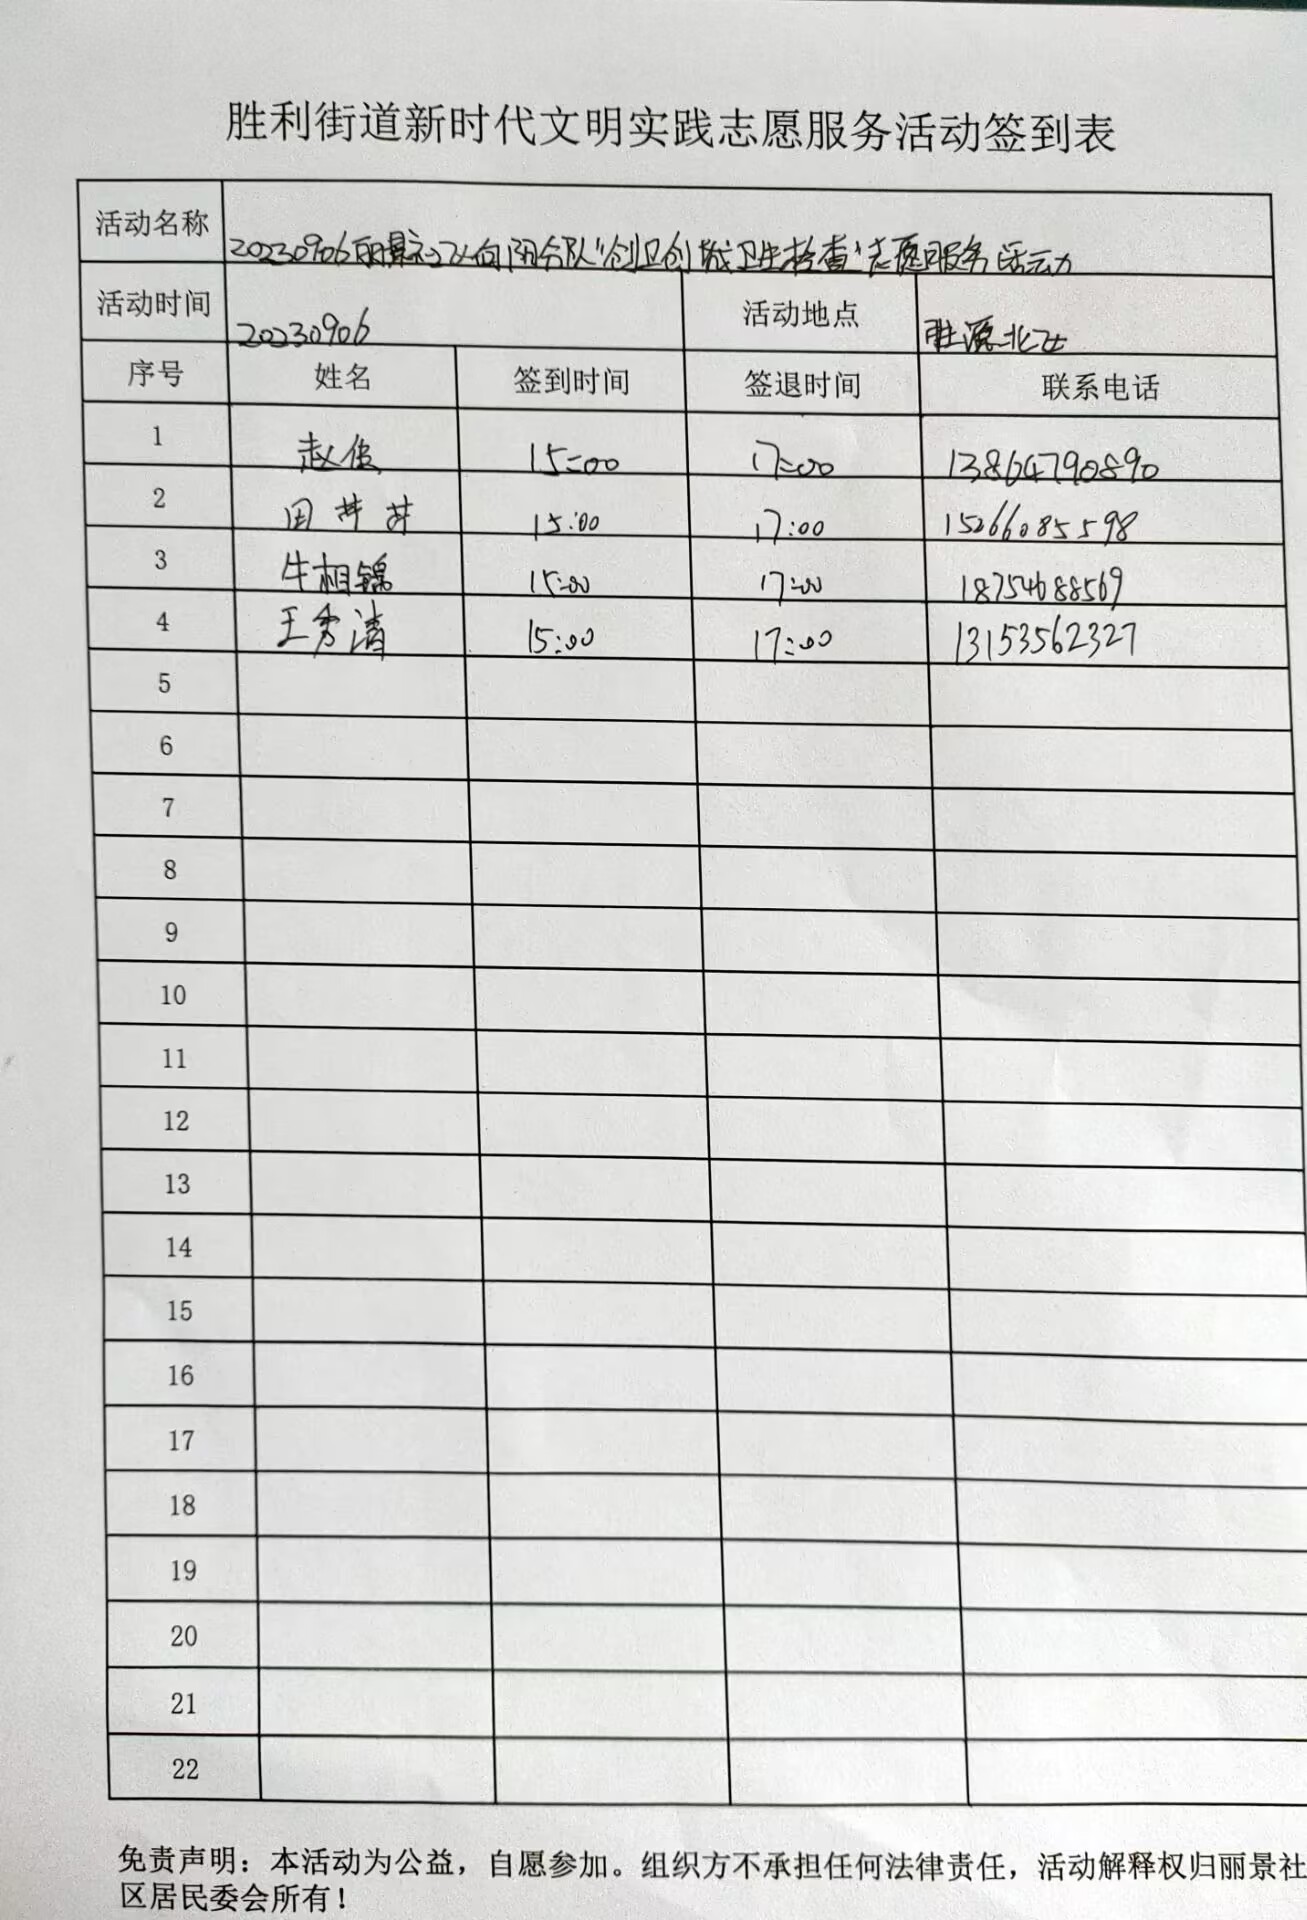 胜利街道新时代文明实践志愿服务活动签到表
活动名称 20230906丽景社区向阳分队“创卫创城卫生检查”志愿服务活动
活动时间 20230906 活动地点 胜源北区
序号 姓名 签到时间 签退时间 联系电话
1 赵俊 15:00 17:00 13864790890
2 田井井 15:00 17:00 15266085598
3 牛相锦 15:00 17:00 18754688569
4 王秀清 15:00 17:00 13153562327
5
6
7
8
9
10
11
12
13
14
15
16
17
18
19
20
21
22
免责声明：本活动为公益，自愿参加。组织方不承担任何法律责任，活动解释权归丽景社
区居民委会所有！